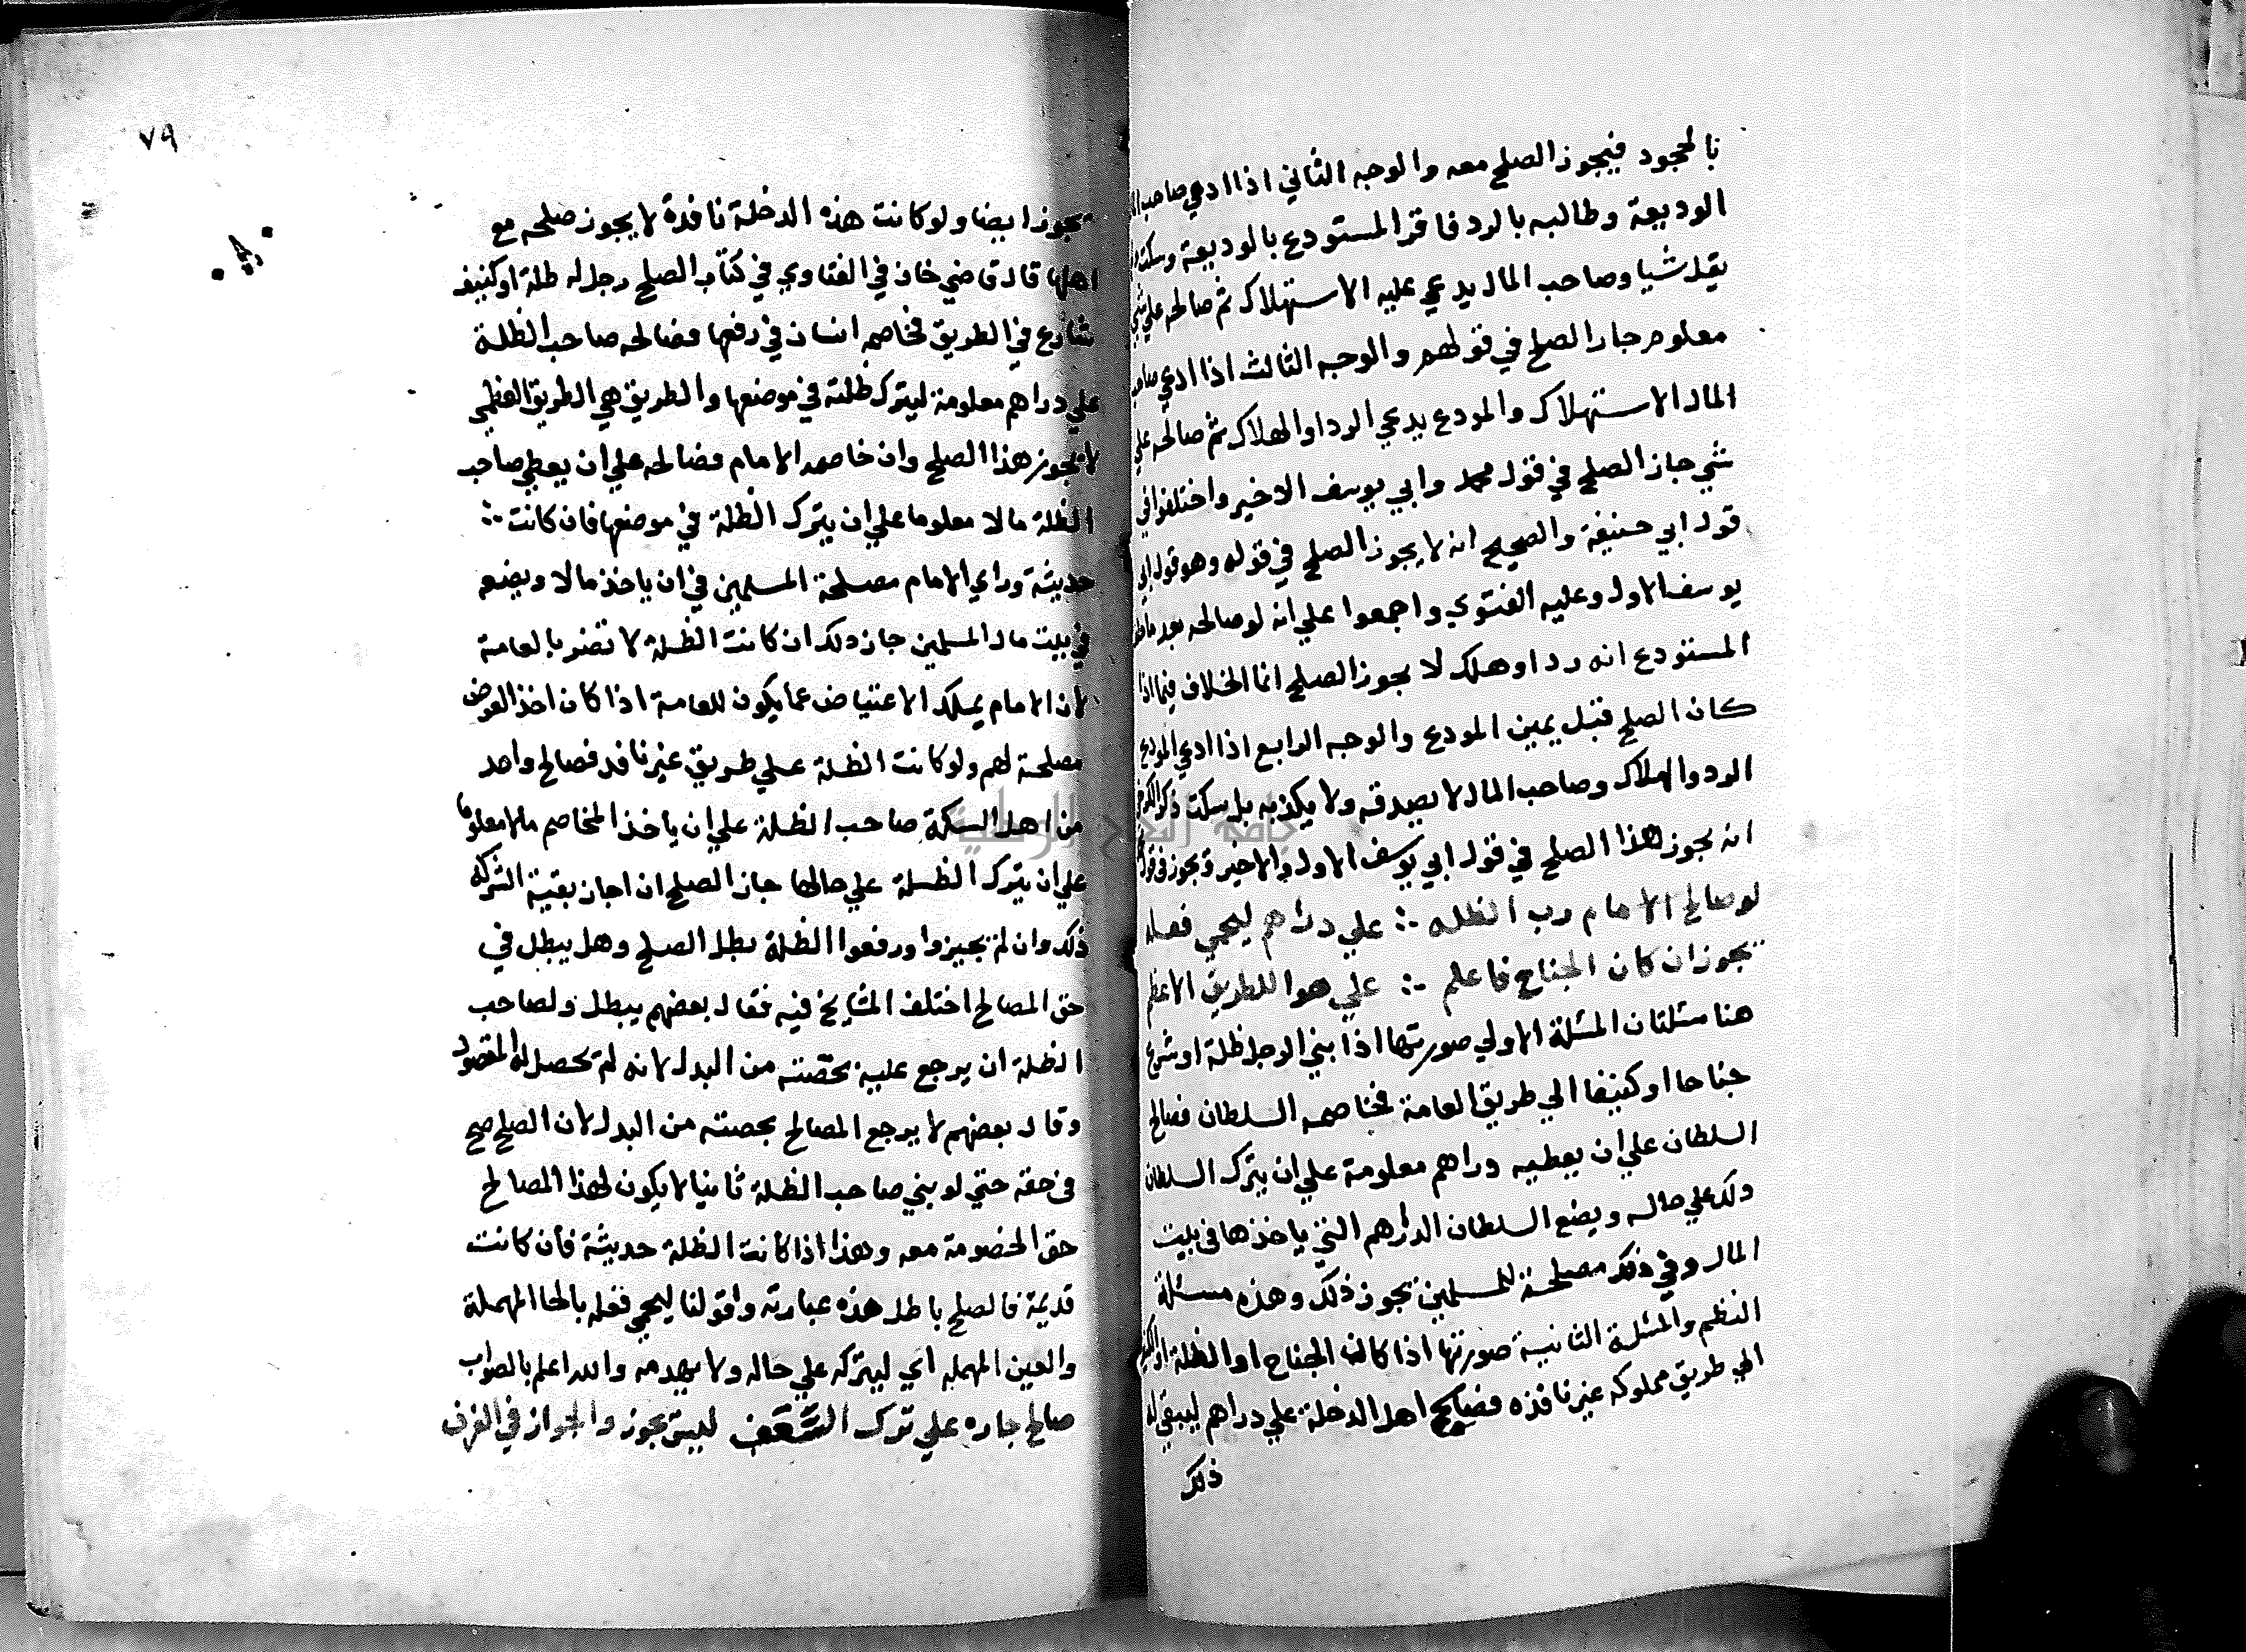 بالجحود فيجوز الصلح معه والوجه الثاني اذا ادعي صاحب
الوديعة وطالبه بالرد فاقر المستودع بالوديعة وسكت
يقل شيا وصاحب المال يدعي عليه الاستهلاك ثم صالحه علي شي
معلوم جاز الصلح في قولهم والوجه الثالث اذا ادعي صاحب
المال الاستهلاك والمودع يدعي الرد او الهلاك ثم صالحه علي
شي جاز الصلح في قول محمد وابي يوسف الاخير واختلفوا في
قول ابي حنيفة والصحيح انه لا يجوز الصلح في قوله وهو قول ابي
يوسف الاول وعليه الفتوي واجمعوا علي انه لو صالحه بعد ما
المستودع انه رد او هلك لا يجوز الصلح انما الخلاف فيما اذا
كان الصلح قبل يمين المودع والوجه الرابع اذا ادعي المودع
الرد والهلاك وصاحب المال لا يصدقه ولا يكذبه بل سكت ذكر
انه يجوز هذا الصلح في قول ابي يوسف الاول والاخير ويجوز في قول
لو صالح الامام رب الظله علي دراهم ليحمي فعله
يجوز ان كان الجناح فاعلم علي هوا للطريق الاعظم
هنا مسئلتان المسئلة الاولي صورتها اذا بني الرجل ظلة او شرع
جناحا او كنيفا الي طريق العامة فخاصمه السلطان فصالح
السلطان علي ان يعطيه دراهم معلومة علي ان يترك السلطان
ذلك علي حاله ويضع السلطان الدراهم التي ياخذها في بيت
المال وفي ذلك مصلحة للمسلمين يجوز ذلك وهذه مسئلة
النظم والمسئلة الثانية صورتها اذا كان الجناح او الظلة او الكنيف
الي طريق مملوكه غير نافذه فصالح اهل الدخلة علي دراهم ليبقي له
ذلك
٧٩
يجوز ايضا ولو كانت هذه الدخلة نافذة لا يجوز صلحه مع
اهلها قال قاضي خان في الفتاوي في كتاب الصلح رجل له ظلة او كنيف
شارع في الطريق فخاصمه انسان في رفعها فصالحه صاحب الظلة
علي دراهم معلومة ليترك ظلته في موضعها والطريق هي الطريق العظمي
لا يجوز هذا الصلح وان خاصمه الامام فصالحه علي ان يعطي صاحب
الظلة مالا معلوما علي ان يترك الظلة في موضعها فان كانت
حديثة وراي الامام مصلحة المسلمين في ان ياخذ مالا ويضعه
في بيت مال المسلمين جاز ذلك ان كانت الظلة لا تضر بالعامة
لان الامام يملك الاعتياض عما يكون للعامة اذا كان اخذ العوض
مصلحة لهم ولو كانت الظلة علي طريق غير نافد فصالح واحد
من اهل السكة صاحب الظلة علي ان ياخذ المخاصم مالا معلوما
علي ان يترك الظلة علي حالها جاز الصلح ان اجاز بقية الشركة
ذلك وان لم يجيزوا ورفعوا الظلة بطل الصلح وهل يبطل في
حق المصالح اختلف المشايخ فيه فقال بعضهم يبطل ولصاحب
الظلة ان يرجع عليه بحصته من البدل لانه لم يحصل له المقصود
وقال بعضهم لا يرجع المصالح بحصته من البدل لان الصلح صح
في حقه حتي لو بني صاحب الظلة ثانيا لا يكون لهذا المصالح
حق الخصومة معه وهذا اذا كانت الظلة حديثة فان كانت
قديمة فالصلح باطل هذه عبارته وقولنا ليحمي فعله بالحا المهملة
والعين المهمله اي ليتركه علي حاله ولا يهدمه والله اعلم بالصواب
صالح جاره علي ترك السعف ليبق يجوز والجواز في الغرف